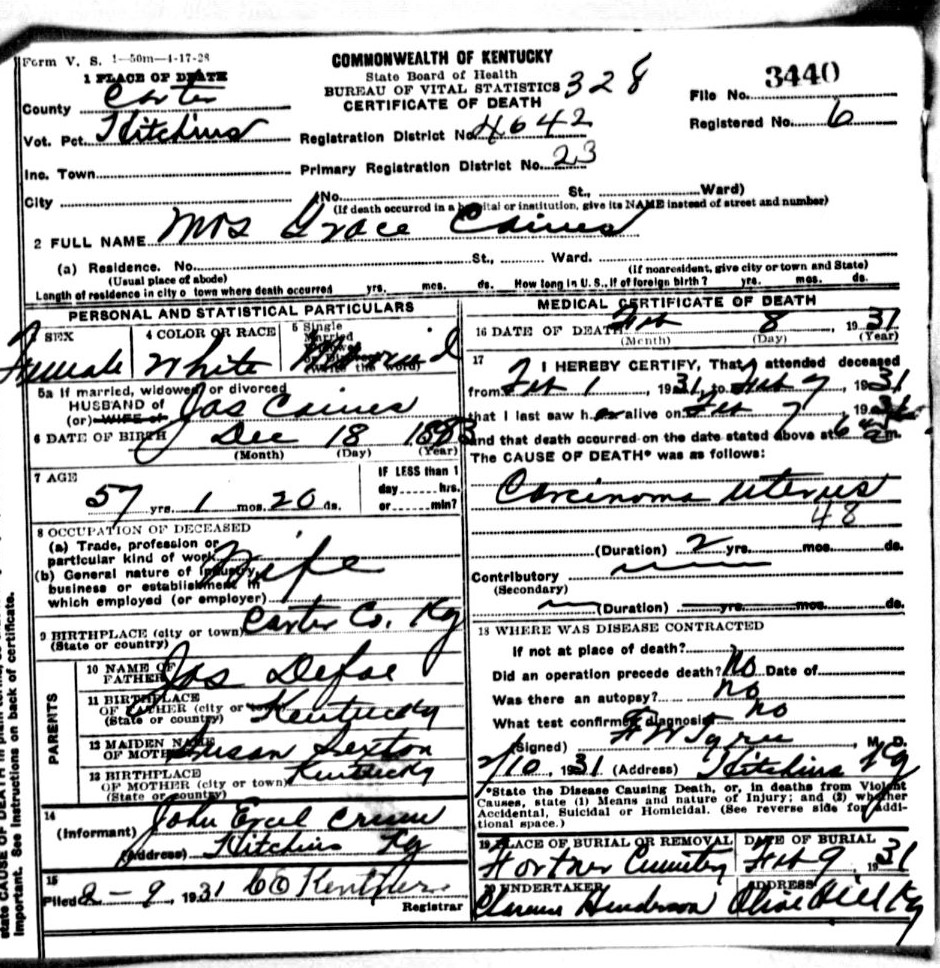 Form V. S. 1-50m-4-17-28
COMMONWEALTH OF KENTUCKY
State Board of Health
BUREAU OF VITAL STATISTICS 328
CERTIFICATE OF DEATH
File No. 3440
Registered No. 6
1 PLACE OF DEATH
County Carter
Vot. Pct. Hitchins
Registration District No. 4642
Inc. Town Primary Registration District No. 23
City (No. St., Ward)
(If death occurred in a hospital or institution, give its NAME instead of street and number)
2 FULL NAME Mrs Grace Caines
(a) Residence. No. St., Ward.
(Usual place of abode) (If nonresident, give city or town and State)
Length of residence in city o town where death occurred yrs. mos. ds. How long in U. S., If of foreign birth? yrs. mos. ds.
PERSONAL AND STATISTICAL PARTICULARS
3 SEX Female
4 COLOR OR RACE White
5 Single
Married
(write the word)
5a If married, widowed or divorced
HUSBAND of Jas Caines
(or) WIFE of
6 DATE OF BIRTH Dec 18
(Month) (Day) (Year)
7 AGE 57 yrs. 1 mos. 20 ds.
IF LESS than 1
day hrs.
or min?
8 OCCUPATION OF DECEASED
(a) Trade, profession or
particular kind of work Wife
(b) General nature of industry,
business or establishment in
which employed (or employer)
9 BIRTHPLACE (city or town) Carter Co. Ky
(State or country)
PARENTS
10 NAME OF FATHER Jas Defoe
11 BIRTHPLACE OF FATHER (city or town) Kentucky
(State or country)
12 MAIDEN NAME OF MOTHER Susan Sexton
13 BIRTHPLACE OF MOTHER (city or town) Kentucky
(State or country)
14
(Informant) John
(Address) Hitchins Ky
15
Filed 2-9, 1931 CO Kentner
Registrar
MEDICAL CERTIFICATE OF DEATH
16 DATE OF DEATH Feb 8, 1931
(Month) (Day) (Year)
17 I HEREBY CERTIFY, That I attended deceased
from Feb 1, 1931, to Feb 7, 1931
that I last saw her alive on Feb 7, 1931
and that death occurred on the date stated above at 6 a m.
The CAUSE OF DEATH* was as follows:
Carcinoma uterus
48
(Duration) 2 yrs. mos. ds.
Contributory
(Secondary)
(Duration) yrs. mos. ds.
18 WHERE WAS DISEASE CONTRACTED
If not at place of death?
Did an operation precede death? No Date of
Was there an autopsy? no
What test confirmed diagnosis? no
(Signed) , M. D.
2/10, 1931 (Address) Hitchins Ky
*State the Disease Causing Death, or, in deaths from Violent
Causes, state (1) Means and nature of Injury; and (2) whether
Accidental, Suicidal or Homicidal. (See reverse side for addi-
tional space.)
19 PLACE OF BURIAL OR REMOVAL Fortner Cemetery
DATE OF BURIAL Feb 9, 1931
20 UNDERTAKER Clarence Henderson
ADDRESS Olive Hill Ky
state CAUSE OF DEATH in plain
important. See instructions on back of certificate.